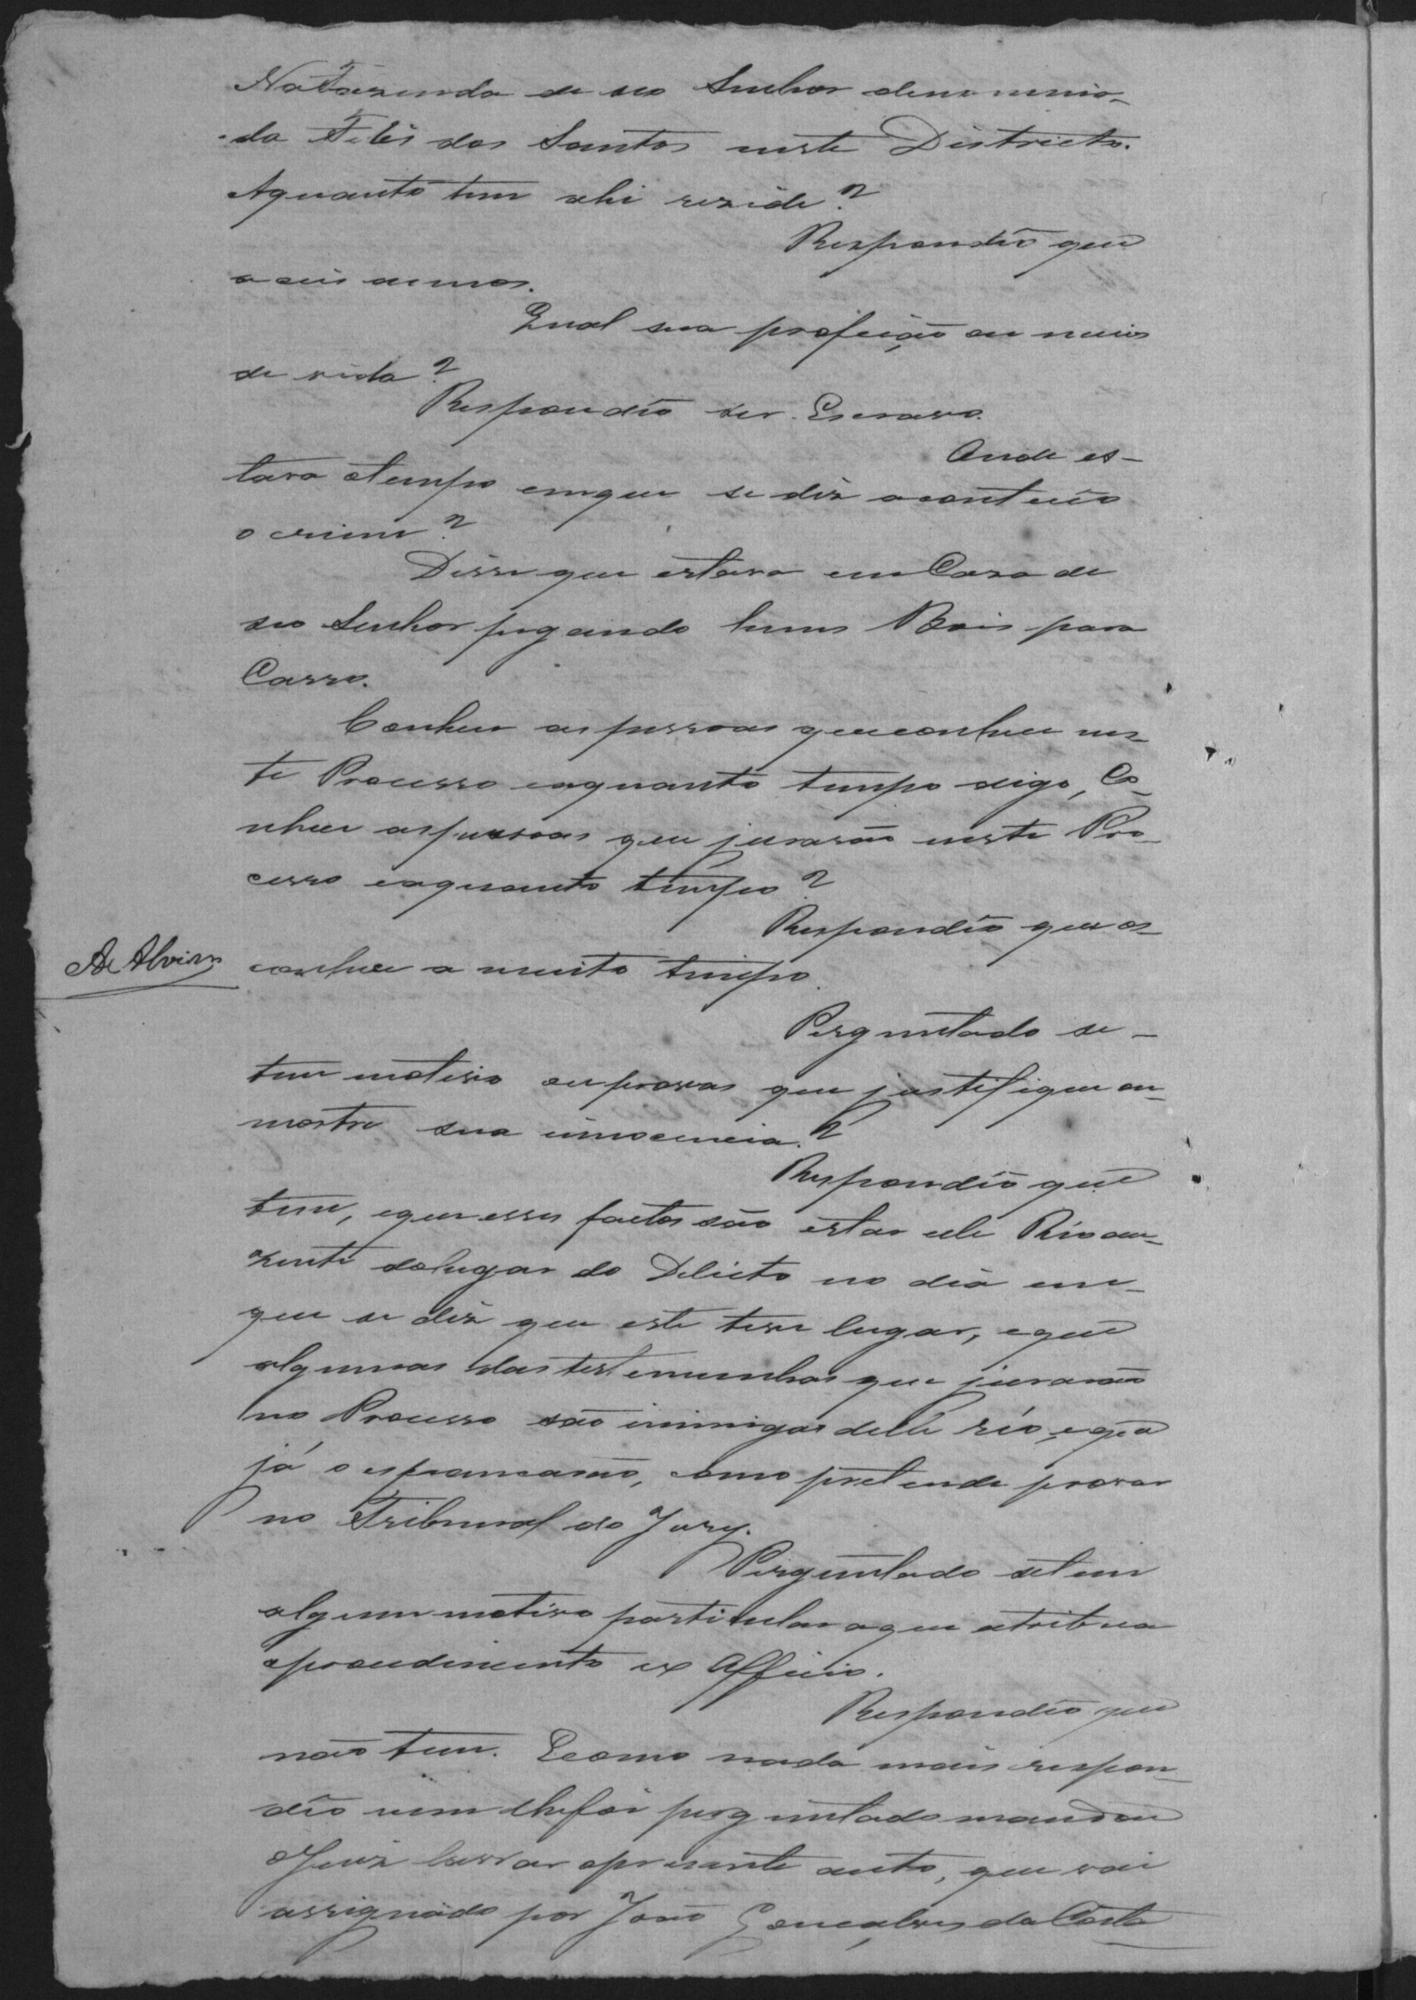 Na Fazenda de seo Senhor denomina-
da dos Santos neste Districto.
Aquanto tem ahi rezide?
Respondêo que
a seis annos.
Qual sua profeição ou meios
de vida?
Respondêo ser Escravo.
Onde es-
tava otempo emque se diz aconteceo
o crime?
Disse que estava em Caza de
seo Senhor pegando huns Bois para
Carro.
Conhece as pessoas que conhece nes-
te Processo eaquanto tempo digo, Co-
nhece aspessoas que jurarão neste Pro-
cesso eaquanto tempo?
Respondêo que os
A. Alvim
conhece a muito tempo.
Perguntado se-
tem motivo ouprovas que justifique ou-
mostre sua innocencia?
Respondêo que
tem, eque esses factos são estar elle Réo au-
zente dolugar do Delicto no dia em-
que se diz que este teve lugar, eque
algumas das testemunhas que jurarão
no Processo são inimigas delle réo, eque
já o espancarão, como pretende provar
no Tribunal do Jury.
Perguntado setem
algum motivo particular aque atribua
oprocedimento ex Officio.
Respondêo que
não tem. Ecomo nada mais respon-
dêo nem lhefoi perguntado mandou
oJuiz lavrar opresente auto, que vai
assignado por João Gonçalves da Costa